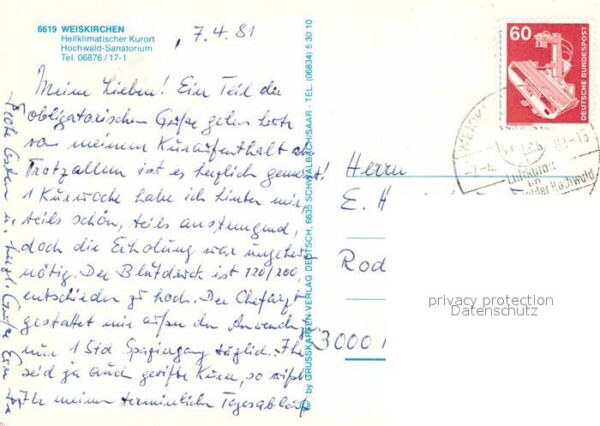 6619 WEISKIRCHEN
Heilklimatischer Kurort
Hochwald-Sanatorium
Tel. 06876 / 17-1
7.4.81
Meine Lieben! Ein Teil der
obligatorischen Grüße gehen heute
von meinem Kuraufenthalt ab.
Trotzallem ist es herzlich gemeint!
1 Kurwoche habe ich hinter mir,
teils schön, teils anstrengend,
doch die Erholung war ungeheuer
nötig. Der Blutdruck ist 120/200,
entschieden zu hoch. Der Chefarzt
gestattet mir außer den Anwend
nur 1 Std Spaziergang täglich. Ihr
seid ja auch geübte Kurer, so wißt
Ihr meinen terminlichen Tagesablauf
Frohe Ostern u. herzl. Grüße
© by GRUSSKARTEN-VERLAG DEUTSCH, 6635 SCHWALBACH/SAAR · TEL. (06834) 5 30 10
60
DEUTSCHE BUNDESPOST
Luftkurort
im
Hochwald
Herrn
E. H
Rod
3000
privacy protection
Datenschutz